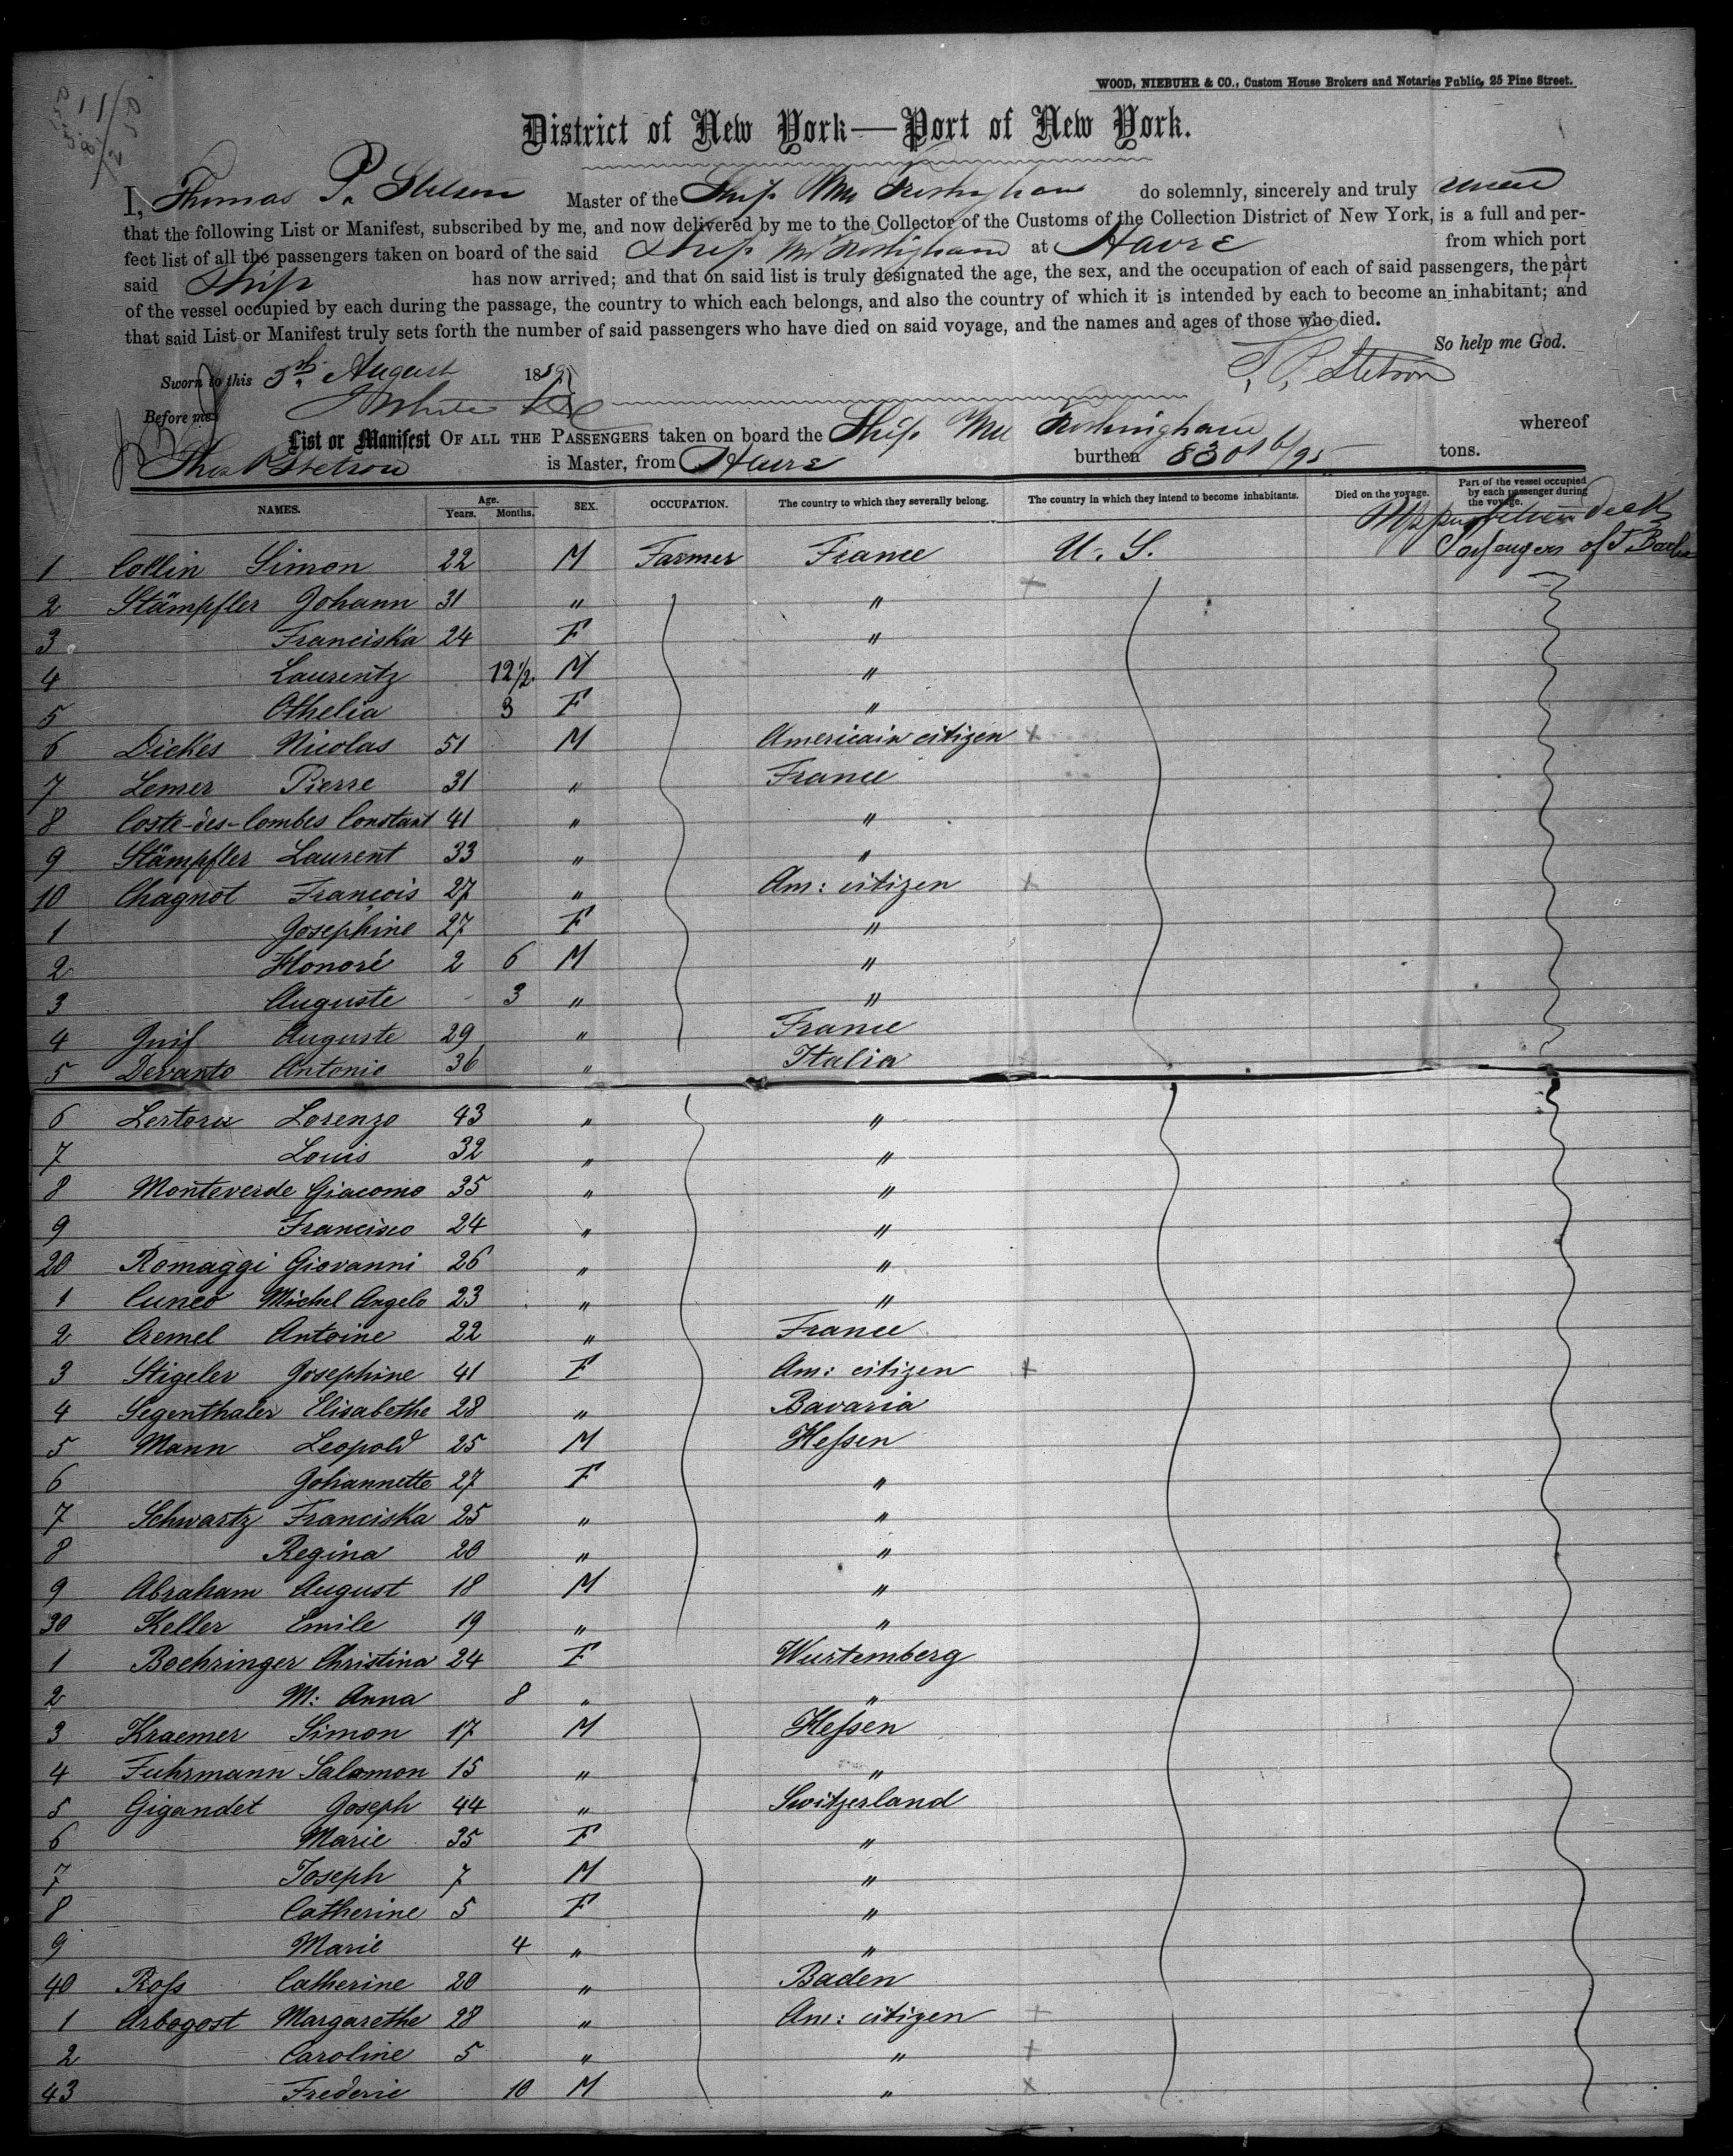 WOOD, NIEBUHR & CO., Custom House Brokers and Notaries Public, 25 Pine Street.
District of New York—Port of New York.
I, Thomas P. Stetson Master of the Ship Wm Frothingham do solemnly, sincerely and truly swear
that the following List or Manifest, subscribed by me, and now delivered by me to the Collector of the Customs of the Collection District of New York, is a full and per-
fect list of all the passengers taken on board of the said Ship Wm Frothingham at Havre from which port
said Ship has now arrived; and that on said list is truly designated the age, the sex, and the occupation of each of said passengers, the part
of the vessel occupied by each during the passage, the country to which each belongs, and also the country of which it is intended by each to become an inhabitant; and
that said List or Manifest truly sets forth the number of said passengers who have died on said voyage, and the names and ages of those who died.
So help me God.
Sworn to this 5th August 1859 T. P. Stetson
Before me, White
List or Manifest OF ALL THE PASSENGERS taken on board the Ship Wm Frothingham whereof
Thos P Stetson is Master, from Havre burthen 830 /95 tons.
NAMES. Age. Years. Months. SEX. OCCUPATION. The country to which they severally belong. The country in which they intend to become inhabitants. Died on the voyage. Part of the vessel occupied by each passenger during the voyage.
Upper between Deck
1 Collin Simon 22 M Farmer France U. S. Passengers of J. Barbe
2 Stämpfler Johann 31 " "
3 Franciska 24 F "
4 Laurentz 12½ M "
5 Othelia 3 F "
6 Dickes Nicolas 51 M Americain citizen x
7 Lemer Pierre 31 " France
8 Coste-des-Combes Constant 41 " "
9 Stämpfler Laurent 33 " "
10 Chagnot François 27 " Am: citizen x
1 Josephine 27 F "
2 Honoré 2 6 M "
3 Auguste 3 " "
4 Juif Auguste 29 " France
5 Devanto Antonio 36 " Italia
6 Lertora Lorenzo 43 " "
7 Louis 32 " "
8 Monteverde Giacomo 35 " "
9 Francisco 24 " "
20 Romaggi Giovanni 26 " "
1 Cuneo Michel Angelo 23 " "
2 Cremel Antoine 22 " France
3 Stigeler Josephine 41 F Am: citizen x
4 Segenthaler Elisabethe 28 " Bavaria
5 Mann Leopold 25 M Heſsen
6 Johannette 27 F "
7 Schwartz Franciska 25 " "
8 Regina 20 " "
9 Abraham August 18 M "
30 Keller Emile 19 " "
1 Boehringer Christina 24 F Wurtemberg
2 M: Anna 8 " "
3 Kraemer Simon 17 M Heſsen
4 Fuhrmann Salomon 15 " "
5 Gigandet Joseph 44 " Switzerland
6 Marie 35 F "
7 Joseph 7 M "
8 Catherine 5 F "
9 Marie 4 " "
40 Roſs Catherine 20 " Baden
1 Arbogost Margarethe 28 " Am: citizen x
2 Caroline 5 " " x
43 Frederic 10 M " x